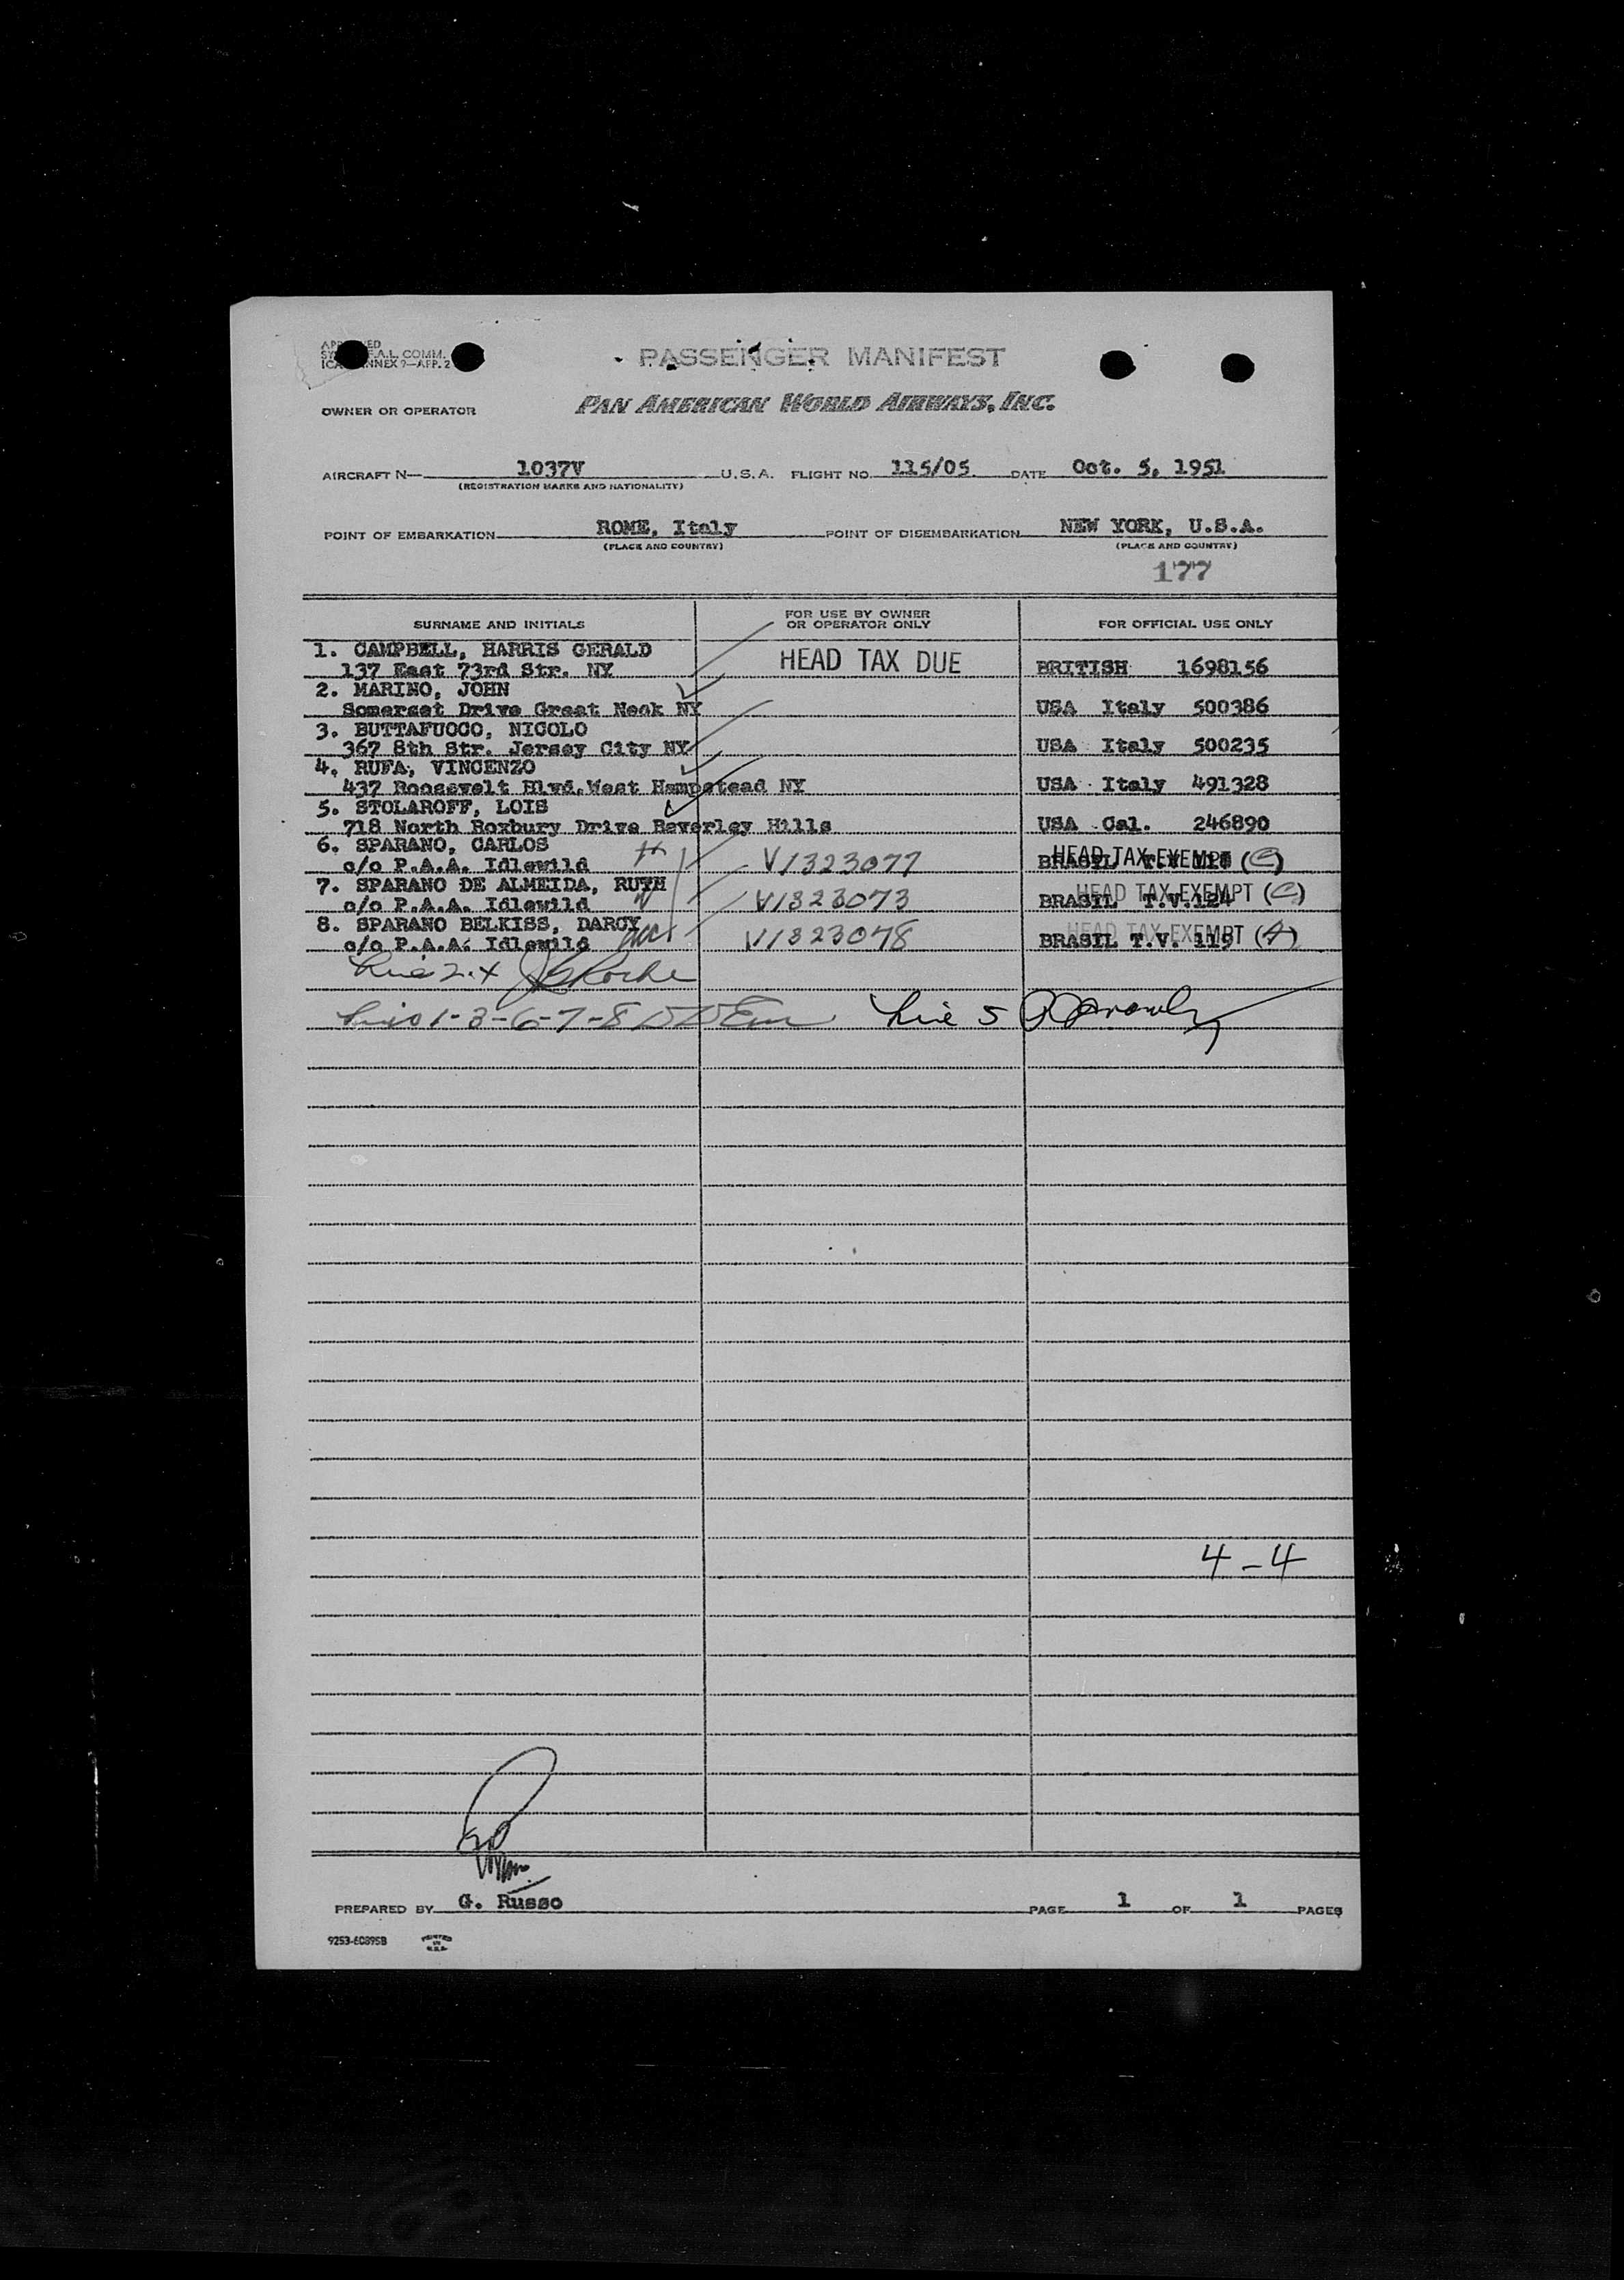 PASSENGER MANIFEST
ICA ANNEX 9—APP. 2
OWNER OR OPERATOR PAN AMERICAN WORLD AIRWAYS, INC.
AIRCRAFT N— 1037V U.S.A. FLIGHT NO. 115/05 DATE Oct. 5, 1951
(REGISTRATION MARKS AND NATIONALITY)
POINT OF EMBARKATION ROME, Italy POINT OF DISEMBARKATION NEW YORK, U.S.A.
(PLACE AND COUNTRY) (PLACE AND COUNTRY)
177
SURNAME AND INITIALS FOR USE BY OWNER OR OPERATOR ONLY FOR OFFICIAL USE ONLY
1. CAMPBELL, HARRIS GERALD
137 East 73rd Str. NY HEAD TAX DUE BRITISH 1698156
2. MARINO, JOHN
Somerset Drive Great Neck NY USA Italy 500386
3. BUTTAFUOCO, NICOLO
367 8th Str. Jersey City NY USA Italy 500235
4. RUFA, VINCENZO
437 Roosevelt Blvd.West Hempstead NY USA Italy 491328
5. STOLAROFF, LOIS
718 North Roxbury Drive Beverley Hills USA Cal. 246890
6. SPARANO, CARLOS
c/o P.A.A. Idlewild V1323077 BRASIL HEAD TAX EXEMPT (C)
7. SPARANO DE ALMEIDA, RUTH
c/o P.A.A. Idlewild V1323073 BRASIL T.V.124 HEAD TAX EXEMPT (C)
8. SPARANO BELKISS, DARCY
c/o P.A.A. Idlewild V1323078 BRASIL T.V. 119 HEAD TAX EXEMPT (A)
Line 2.4
Lines 1-3-6-7-8 Line 5
4-4
PREPARED BY G. Russo PAGE 1 OF 1 PAGES
9253-60895B PRINTED IN U.S.A.